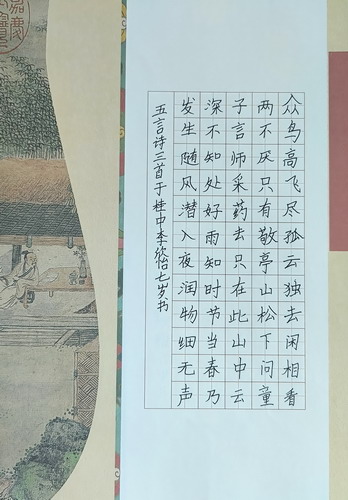 众鸟高飞尽孤云独去闲相看
两不厌只有敬亭山松下问童
子言师采药去只在此山中云
深不知处好雨知时节当春乃
发生随风潜入夜润物细无声
五言诗三首于桂中李欣怡七岁书
嘉慶